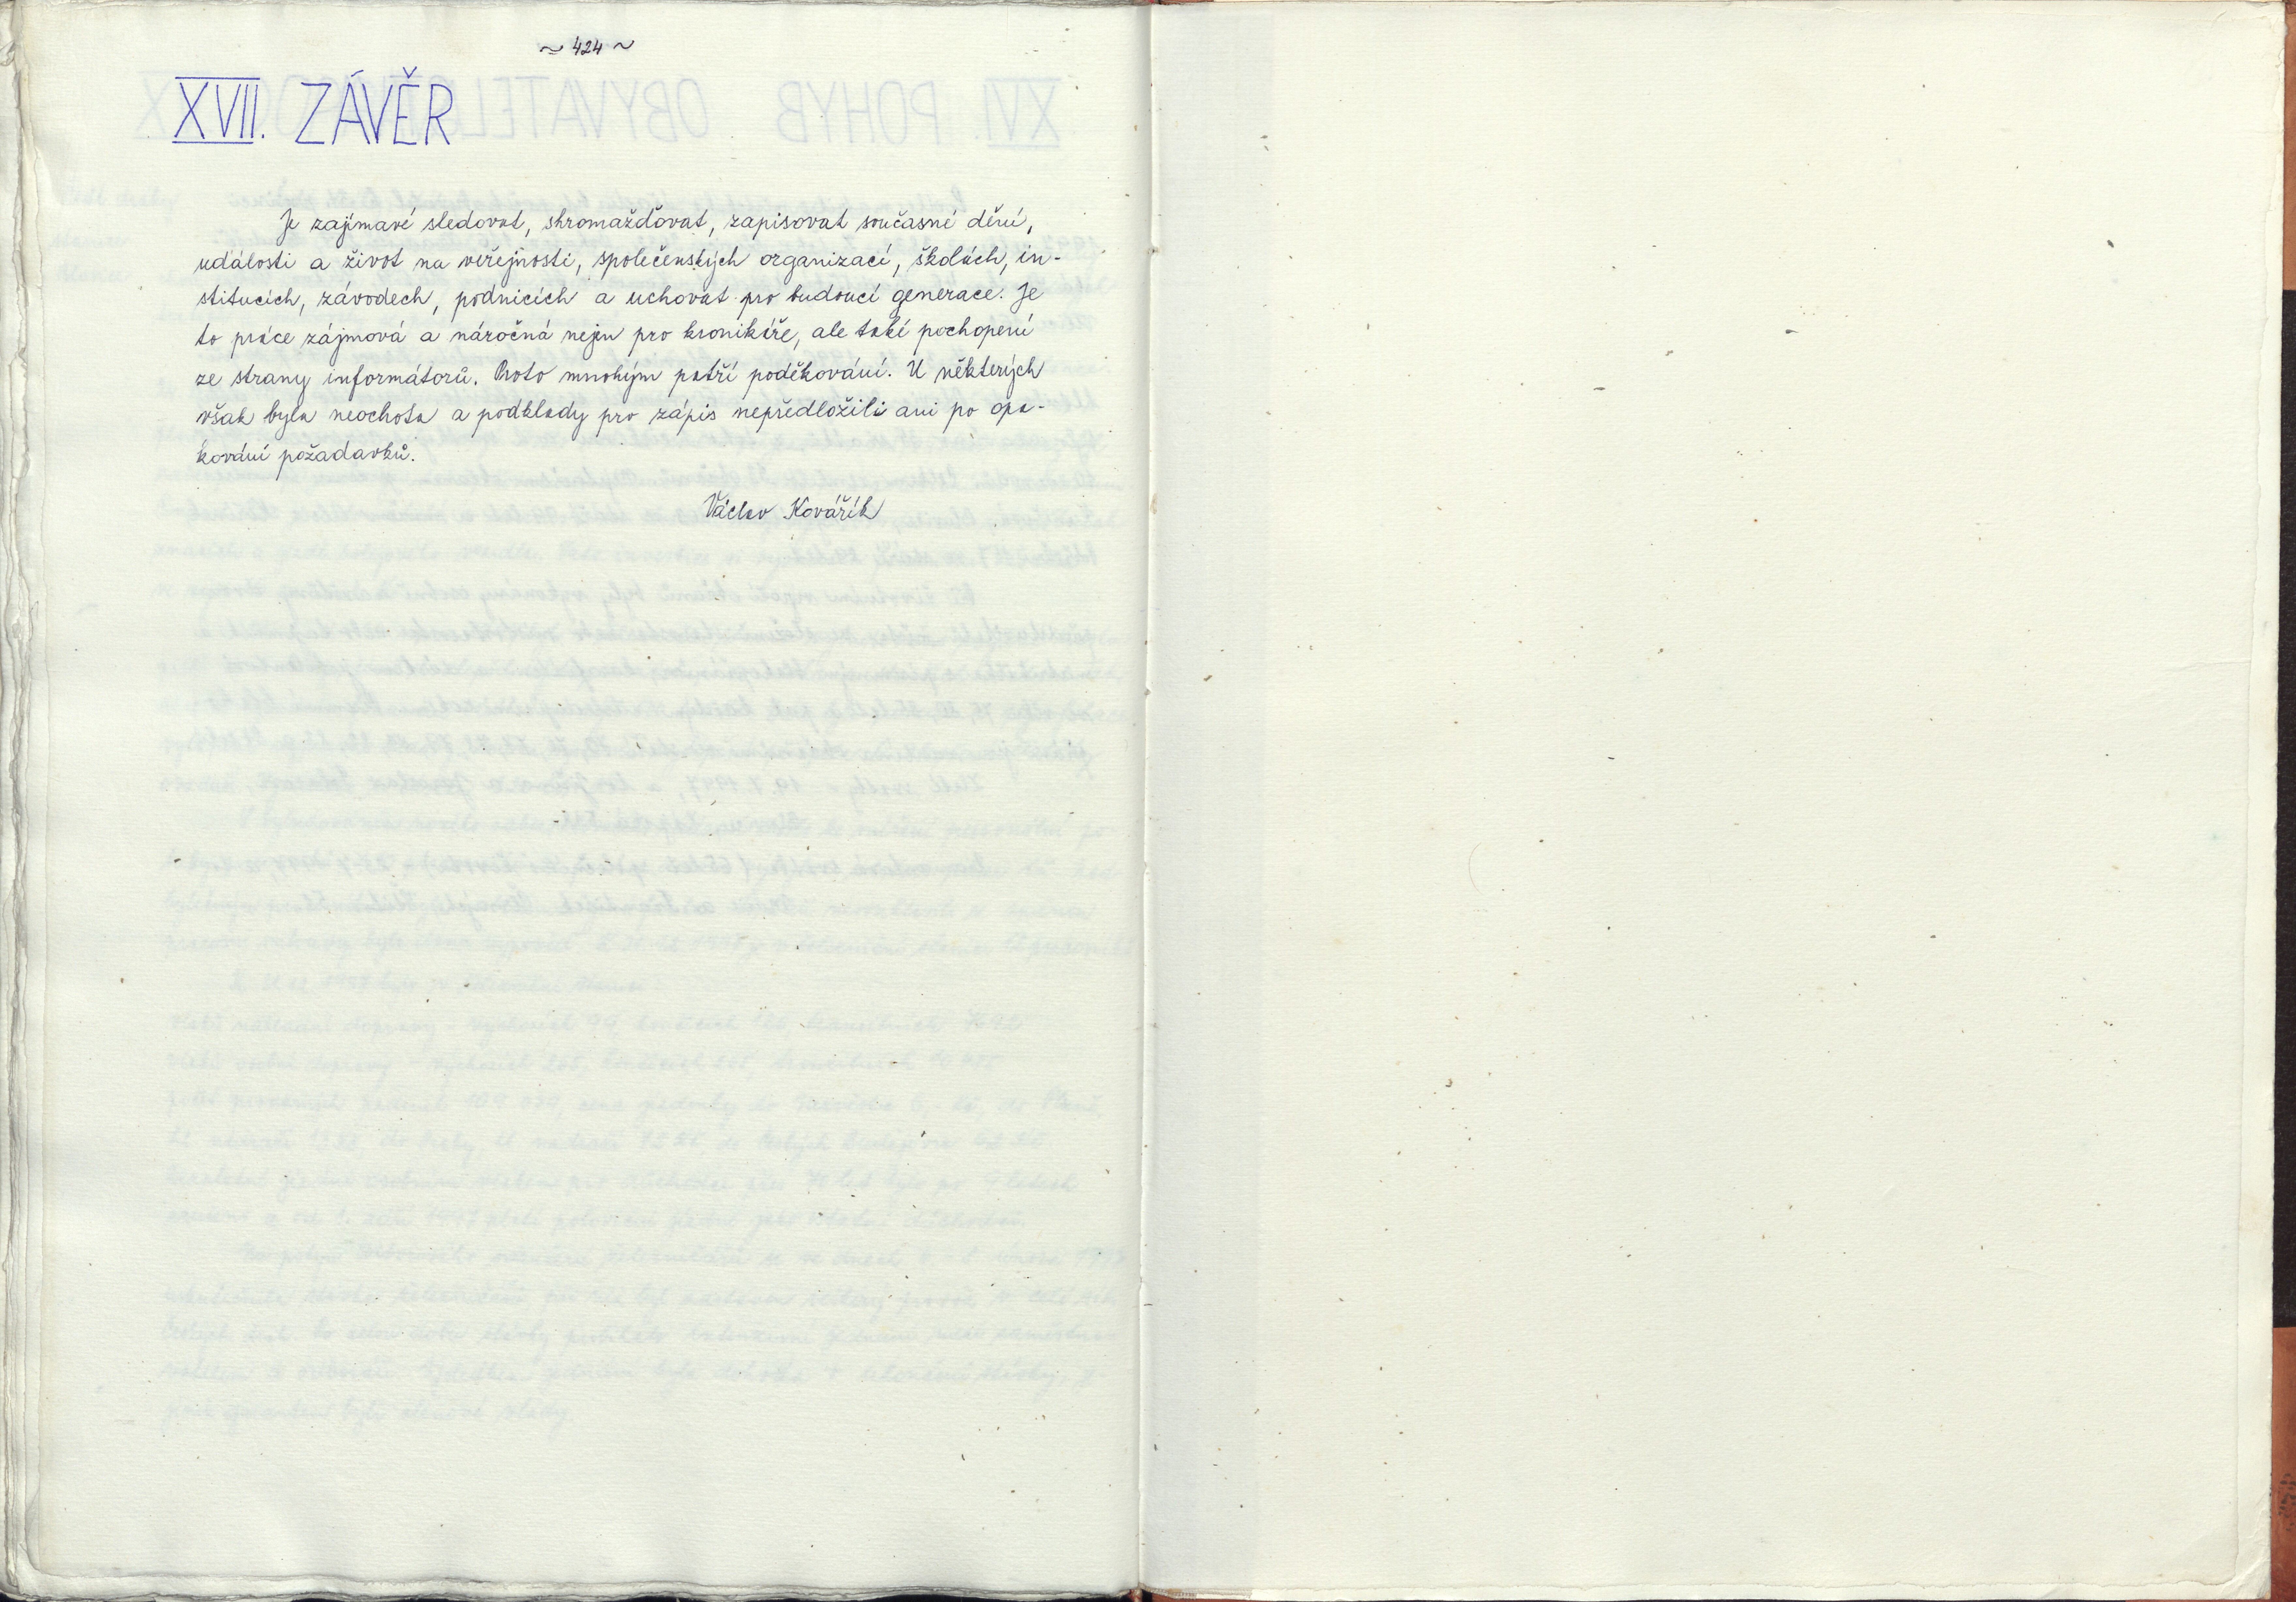 ~ 424 ~
XVII. ZÁVĚR
Je zajímavé sledovat, shromažďovat, zapisovat současné dění,
události a život na veřejnosti, společenských organizací, školách, in-
stitucích, závodech, podnicích a uchovat pro budoucí generace. Je
to práce zájmová a náročná nejen pro kronikáře, ale také pochopení
ze strany informátorů. Proto mnohým patří poděkování. U některých
však byla neochota a podklady pro zápis nepředložili ani po opa-
kování požadavků.
Václav Kovářík